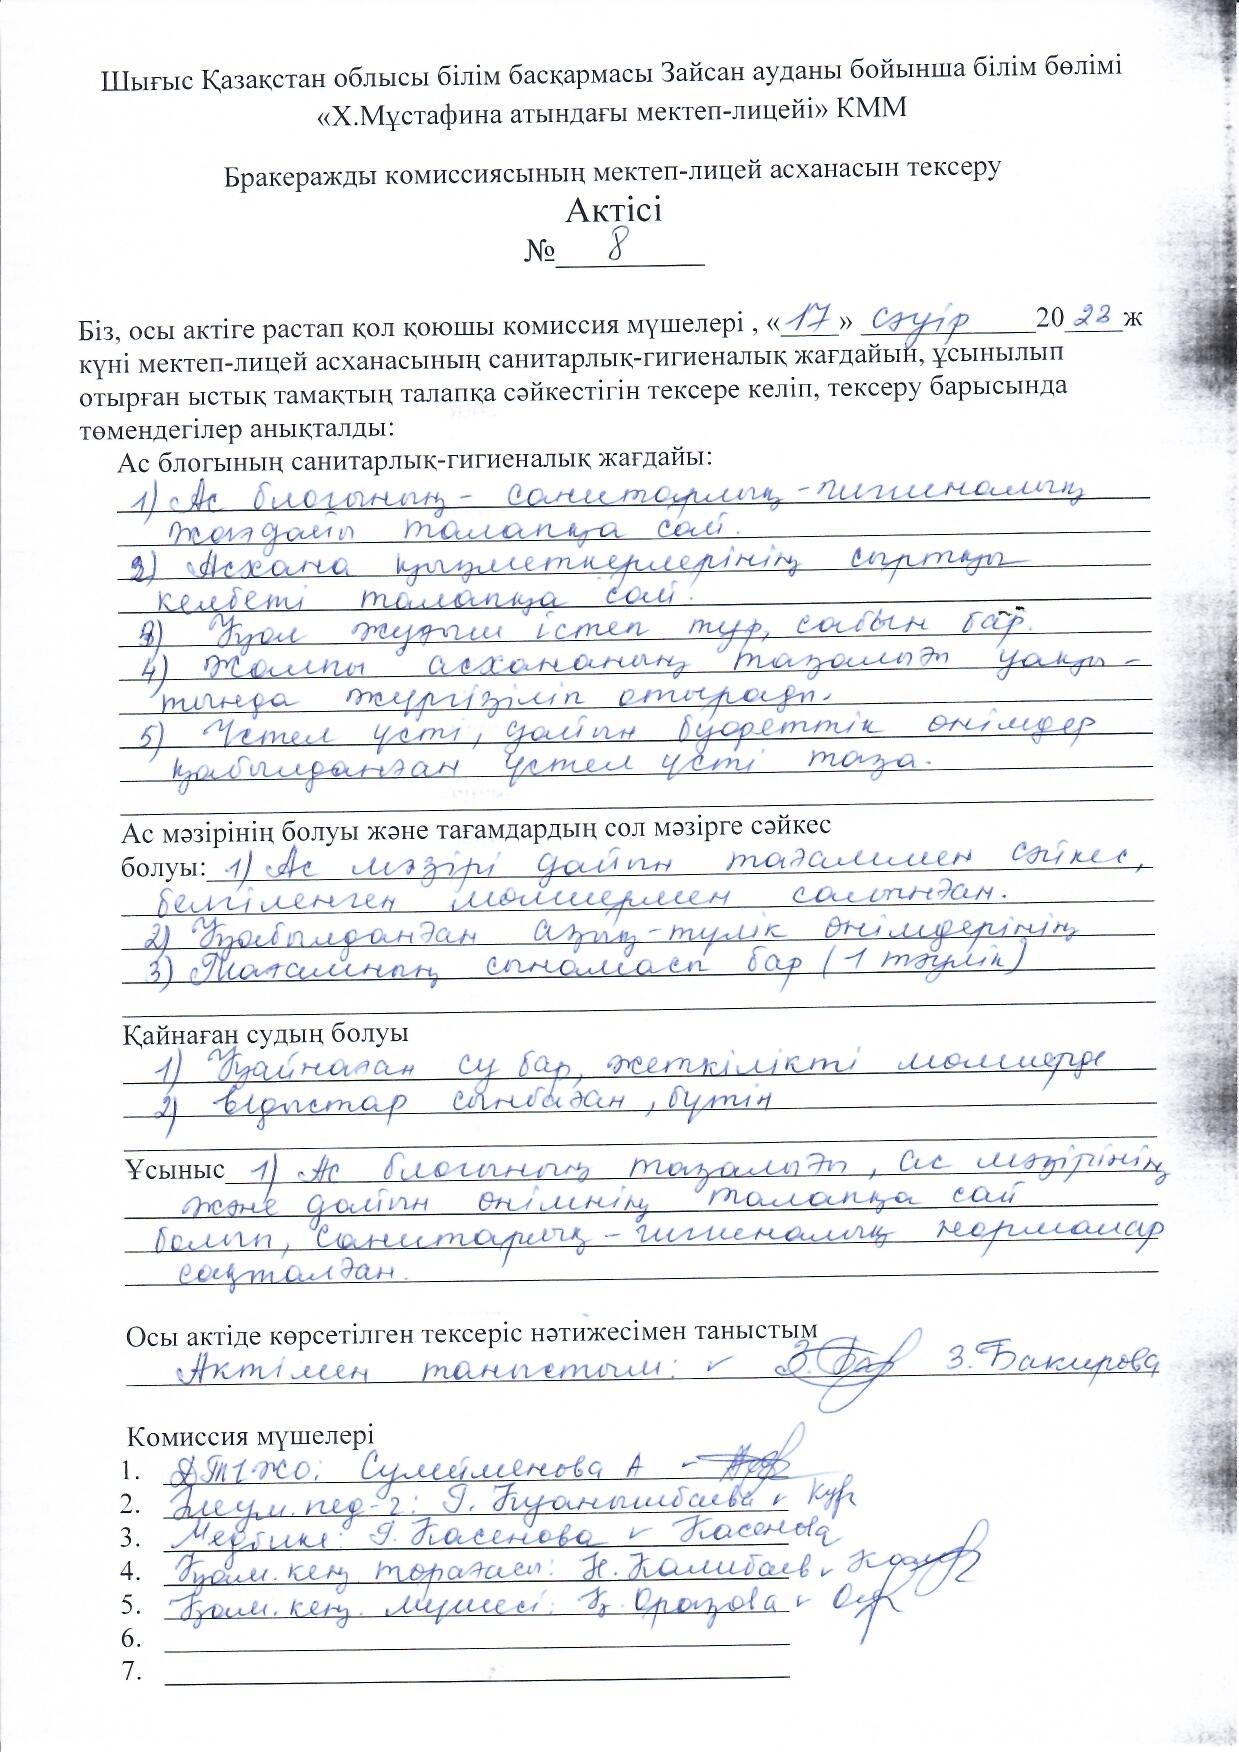 Шығыс Қазақстан облысы білім басқармасы Зайсан ауданы бойынша білім бөлімі
«Х.Мұстафина атындағы мектеп-лицейі» КММ
Бракеражды комиссиясының мектеп-лицей асханасын тексеру
Актісі
№ 8
Біз, осы актіге растап қол қоюшы комиссия мүшелері , «17» сәуір 2023ж
күні мектеп-лицей асханасының санитарлық-гигиеналық жағдайын, ұсынылып
отырған ыстық тамақтың талапқа сәйкестігін тексере келіп, тексеру барысында
төмендегілер анықталды:
Ас блогының санитарлық-гигиеналық жағдайы:
1) Ас блогының - санитарлық-гигиеналық
жағдайы талапқа сай.
2) Асхана қызметкерлерінің сыртқы
келбеті талапқа сай.
3) Қол жуғыш істеп тұр, сабын бар.
4) Жалпы асхананың тазалығы уақы-
тында жүргізіліп отырады.
5) Үстел үсті, дайын буфеттік өнімдер
қабылданған үстел үсті таза.
Ас мәзірінің болуы және тағамдардың сол мәзірге сәйкес
болуы: 1) Ас мәзірі дайын тағаммен сәйкес,
белгіленген мөлшермен салынған.
2) Қабылданған азық-түлік өнімдерінің
3) Тағамның сынамасы бар (1 тәулік)
Қайнаған судың болуы
1) Қайнаған су бар, жеткілікті мөлшерде
2) Ыдыстар сынбаған, бүтін
Ұсыныс 1) Ас блогының тазалығы, ас мәзірінің
және дайын өнімнің талапқа сай
болып, санитарлық-гигиеналық нормалар
сақталған.
Осы актіде көрсетілген тексеріс нәтижесімен таныстым
Актімен таныстым: З.Бакирова
Комиссия мүшелері
1. ДТІЖО: Сулейменова А
2. Әлеум.пед-г: Г. Қуанышбаева
3. Медбике: Г. Касенова Касенова
4. Қам.кең төрағасы: Н. Калибаев
5. Қам.кең. мүшесі: Қ. Оразова
6.
7.